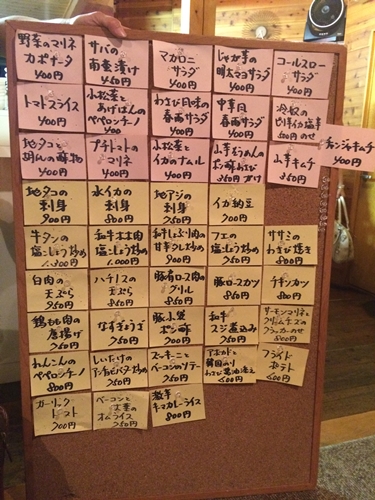 野菜のマリネ
カポナータ
400円
サバの
南蛮漬け
450円
マカロニ
サラダ
400円
じゃが芋の
明太マヨサラダ
400円
コールスロー
サラダ
400円
トマトスライス
400円
小松菜と
あげぱんの
ペペロンチーノ
400円
わさび風味の
春雨サラダ
400円
中華風
春雨サラダ
400円
冷奴の
ピリ辛イカ塩辛
500円 のせ
チャンジャキムチ
400円
地タコと
胡瓜の酢物
プチトマトの
マリネ
400円
小松菜と
イカのナムル
400円
山芋そうめんの
350円
山芋キムチ
350円
地タコの
刺身
900円
水イカの
刺身
800円
地アジの
刺身
750円
イカ納豆
700円
牛タンの
塩こしょう炒め
1,200円
和牛木木肉
塩こしょう炒め
1,000円
和牛しぶり肉の
甘辛タレ炒め
900円
フエの
塩こしょう炒め
750円
ササミの
わさび焼き
800円
白肉の
天ぷら
750円
ハチノスの
天ぷら
850円
豚肩ロース肉の
グリル
850円
豚ロースカツ
850円
チキンカツ
800円
鶏もも肉の
唐揚げ
750円
なすぎょうざ
750円
豚小袋
ポン酢
700円
和牛
スジ煮込み
750円
サーモンマリネと
クリームチーズの
クラッカーのせ
800円
れんこんの
ペペロンチーノ
800円
しいたけの
アンチョビバター炒め
750円
ズッキーニと
ベーコンのソテー
750円
アボカドと
韓国のり
わさび醤油添え
600円
フライド
ポテト
600円
ガーリック
トースト
700円
ベーコンと
大葉の
オムライス
750円
激辛
キーマカレーライス
800円